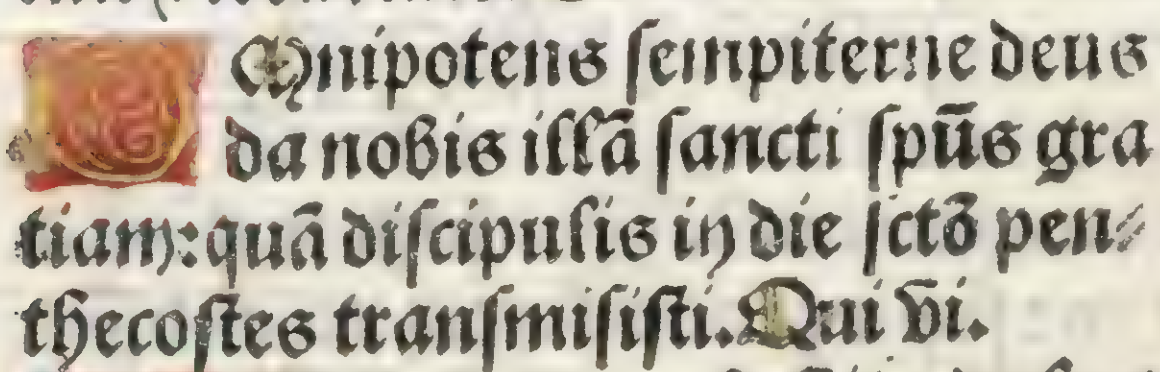 OMnipotens sempiterne deus
da nobis illā sancti spūs gra
tiam: quā discipulis in die sctō pen⸗
thecostes transmisisti. Qui vi.